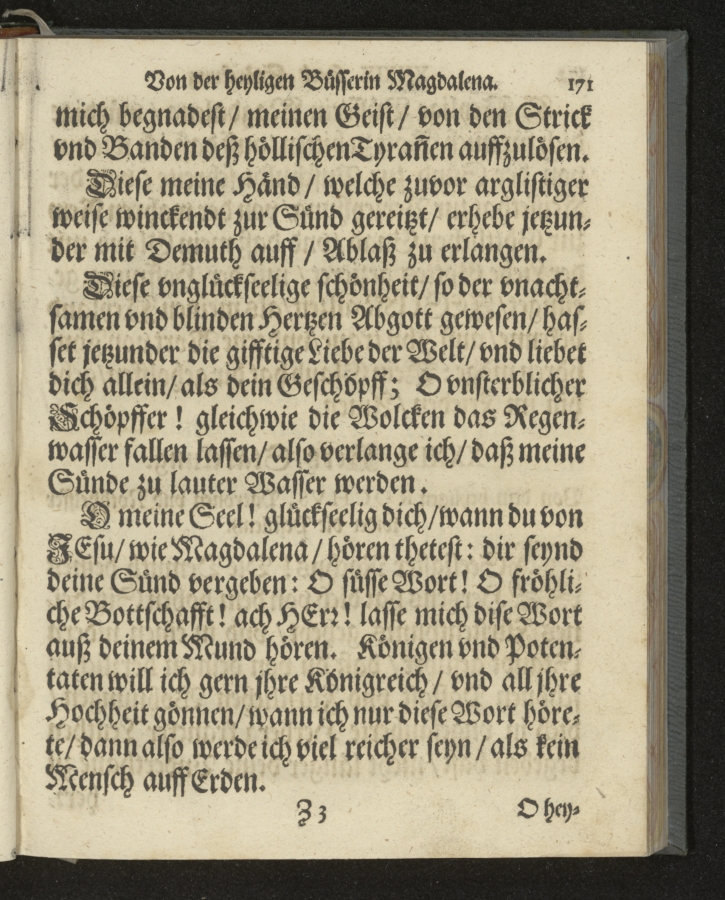 Von der heyligen Büsserin Magdalena. 171
mich begnadest / meinen Geist / von den Strick
vnd Banden deß höllischen Tyrañen auffzulösen.
Diese meine Händ / welche zuvor arglistiger
weise winckendt zur Sünd gereitzt / erhebe jetzun⸗
der mit Demuth auff / Ablaß zu erlangen.
Diese vnglückseelige schönheit / so der vnacht⸗
samen vnd blinden Hertzen Abgott gewesen / has⸗
set jetzunder die gifftige Liebe der Welt / vnd liebet
dich allein / als dein Geschöpff; O vnsterblicher
Schöpffer! gleichwie die Wolcken das Regen⸗
wasser fallen lassen / also verlange ich / daß meine
Sünde zu lauter Wasser werden.
O meine Seel! glückseelig dich / wann du von
JEsu / wie Magdalena / hören thetest: dir seynd
deine Sünd vergeben: O süsse Wort! O fröhli⸗
che Bottschafft! ach HErꝛ! lasse mich dise Wort
auß deinem Mund hören. Königen vnd Poten⸗
taten will ich gern jhre Königreich / vnd all jhre
Hochheit gönnen / wann ich nur diese Wort höre⸗
te / dann also werde ich viel reicher seyn / als kein
Mensch auff Erden.
Z 3 O hey⸗